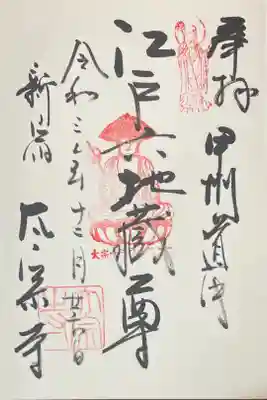 奉拝 甲州道中
江戸六地蔵尊
令和三年十二月廿日
新宿 太宗寺